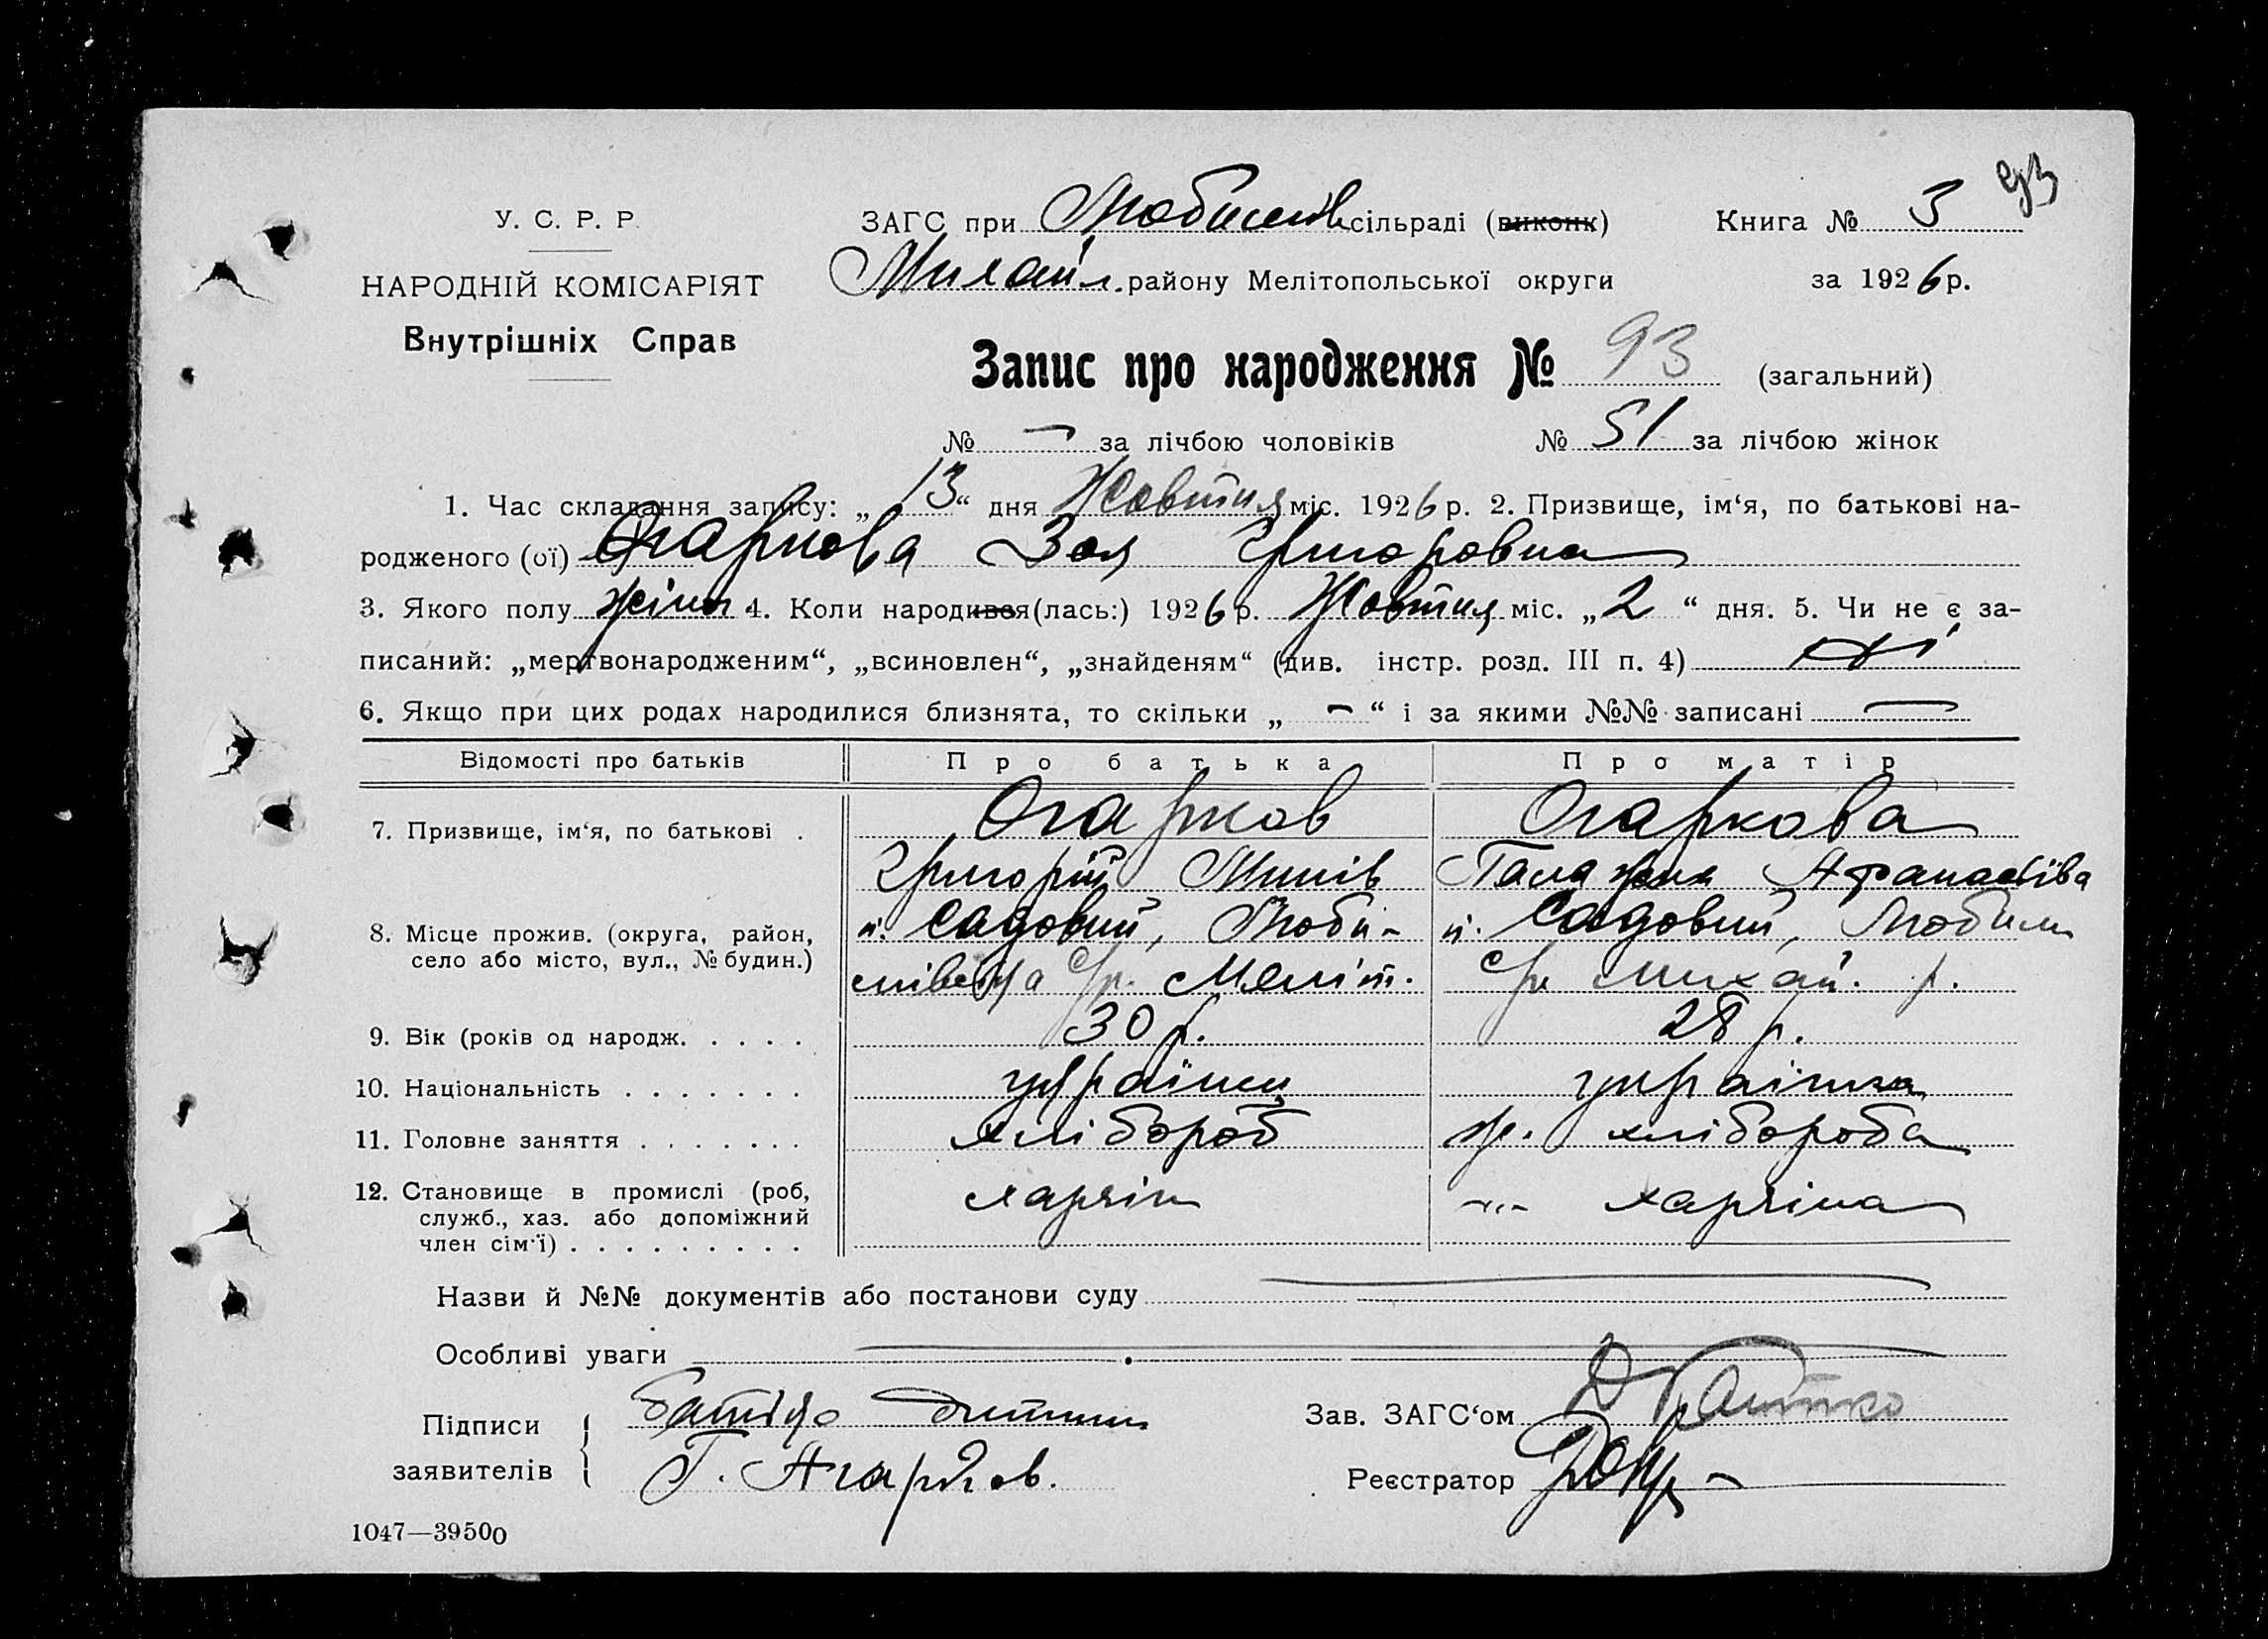 93
У. С. Р. Р.
НАРОДНІЙ КОМІСАРІЯТ
Внутрішніх Справ
ЗАГС при Любимів сільраді (виконк)
Михайл. району Мелітопольської округи
Книга № 3
за 1926 р.
Запис про народження № 93 (загальний)
№ — за лічбою чоловіків № 51 за лічбою жінок
1. Час складання запису: „13“ дня Жовтня міс. 1926 р. 2. Призвище, ім‘я, по батькові на-
родженого (ої) Огаркова Зоя Григоровна
3. Якого полу жіноч. 4. Коли народився(лась:) 1926 р. Жовтня міс. „2“ дня. 5. Чи не є за-
писаний: „мертвонародженим“, „всиновлен“, „знайденям“ (див. інстр. розд. III п. 4) Ні
6. Якщо при цих родах народилися близнята, то скільки „ — “ і за якими №№ записані —
Відомості про батьків Про батька Про матір
7. Призвище, ім‘я, по батькові . Огарков Огаркова
Григорій Афанасіїва
8. Місце прожив. (округа, район, п. Садовий, Люби- п. Садовий, Любим
село або місто, вул., № будин.) с/р. Меліт. с/р Михай. р.
9. Вік (років од народж. . . . . 30 р. 28 р.
10. Національність . . . . . . . українец українка
11. Головне заняття . . . . . . . хлібороб ж. хлібороба
12. Становище в промислі (роб, харчін -"- харчіна
служб., хаз. або допоміжний
член сім‘ї) . . . . . . . . .
Назви й №№ документів або постанови суду
Особливі уваги
Підписи
заявителів
батько дитини
Г. Агарков.
Зав. ЗАГС‘ом
Реєстратор
1047—39500